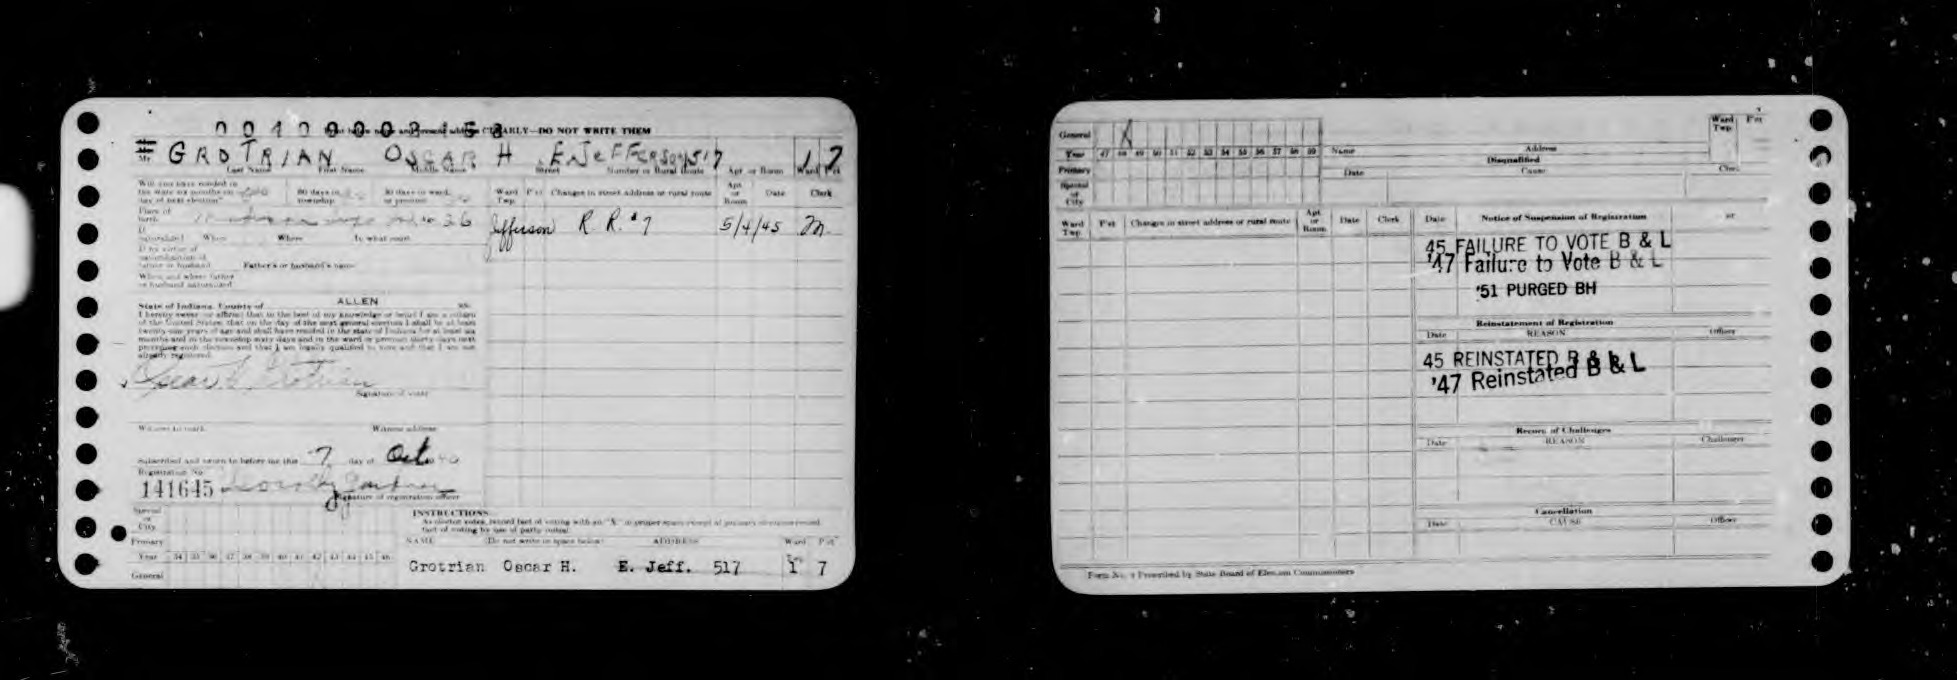 Print below name and present address CLEARLY—DO NOT WRITE THEM
Mr. GROTRIAN OSCAR H E. JEFFERSON 517 1 7
Last Name First Name Middle Name Street Number or Rural Route Apt. or Room Ward Pct
Will you have resided in
the state six months on
day of next election?
60 days in
township
30 days in ward
or precinct
Ward
Twp.
Pct Changes in street address or rural route
Apt
or
Room
Date Clerk
Place of
birth
Jefferson R. R. #7 5/4/45 M.
If
naturalized When Where In what court
If by virtue of
naturalization of
father or husband Father's or husband's name
When and where father
or husband naturalized
State of Indiana, County of ALLEN ss:
I hereby swear (or affirm) that to the best of my knowledge or belief I am a citizen
of the United States, that on the day of the next general election I shall be at least
twenty-one years of age and shall have resided in the state of Indiana for at least six
months and in the township sixty days and in the ward or precinct thirty days next
preceding such election and that I am legally qualified to vote and that I am not
already registered.
Oscar H. Grotrian
Signature of voter
Witness to mark Witness address
Subscribed and sworn to before me this 7 day of Oct 1940
Registration No.
141645 Dorothy Gardner
Signature of registration officer
Special
or
City
Primary
Year 34 35 36 37 38 39 40 41 42 43 44 45 46
General
INSTRUCTIONS
As elector votes, record fact of voting with an "X" in proper space except at primary election record
fact of voting by use of party initial.
NAME (Do not write in space below) ADDRESS Ward Pct
Grotrian Oscar H. E. Jeff. 517 1 7
General X
Year 47 48 49 50 51 52 53 54 55 56 57 58 59
Primary
Special
or
City
Name Address
Ward
Twp.
Pct
Disqualified
Date Cause Clerk
Ward
Twp.
Pct Changes in street address or rural route
Apt
or
Room
Date Clerk
Date Notice of Suspension of Registration
45 FAILURE TO VOTE B & L
'47 Failure to Vote B & L
'51 PURGED BH
Reinstatement of Registration
Date REASON Officer
45 REINSTATED B & L
'47 Reinstated B & L
Record of Challenges
Date REASON Challenger
Cancellation
Date CAUSE Officer
Form No. 4 Prescribed by State Board of Election Commissioners